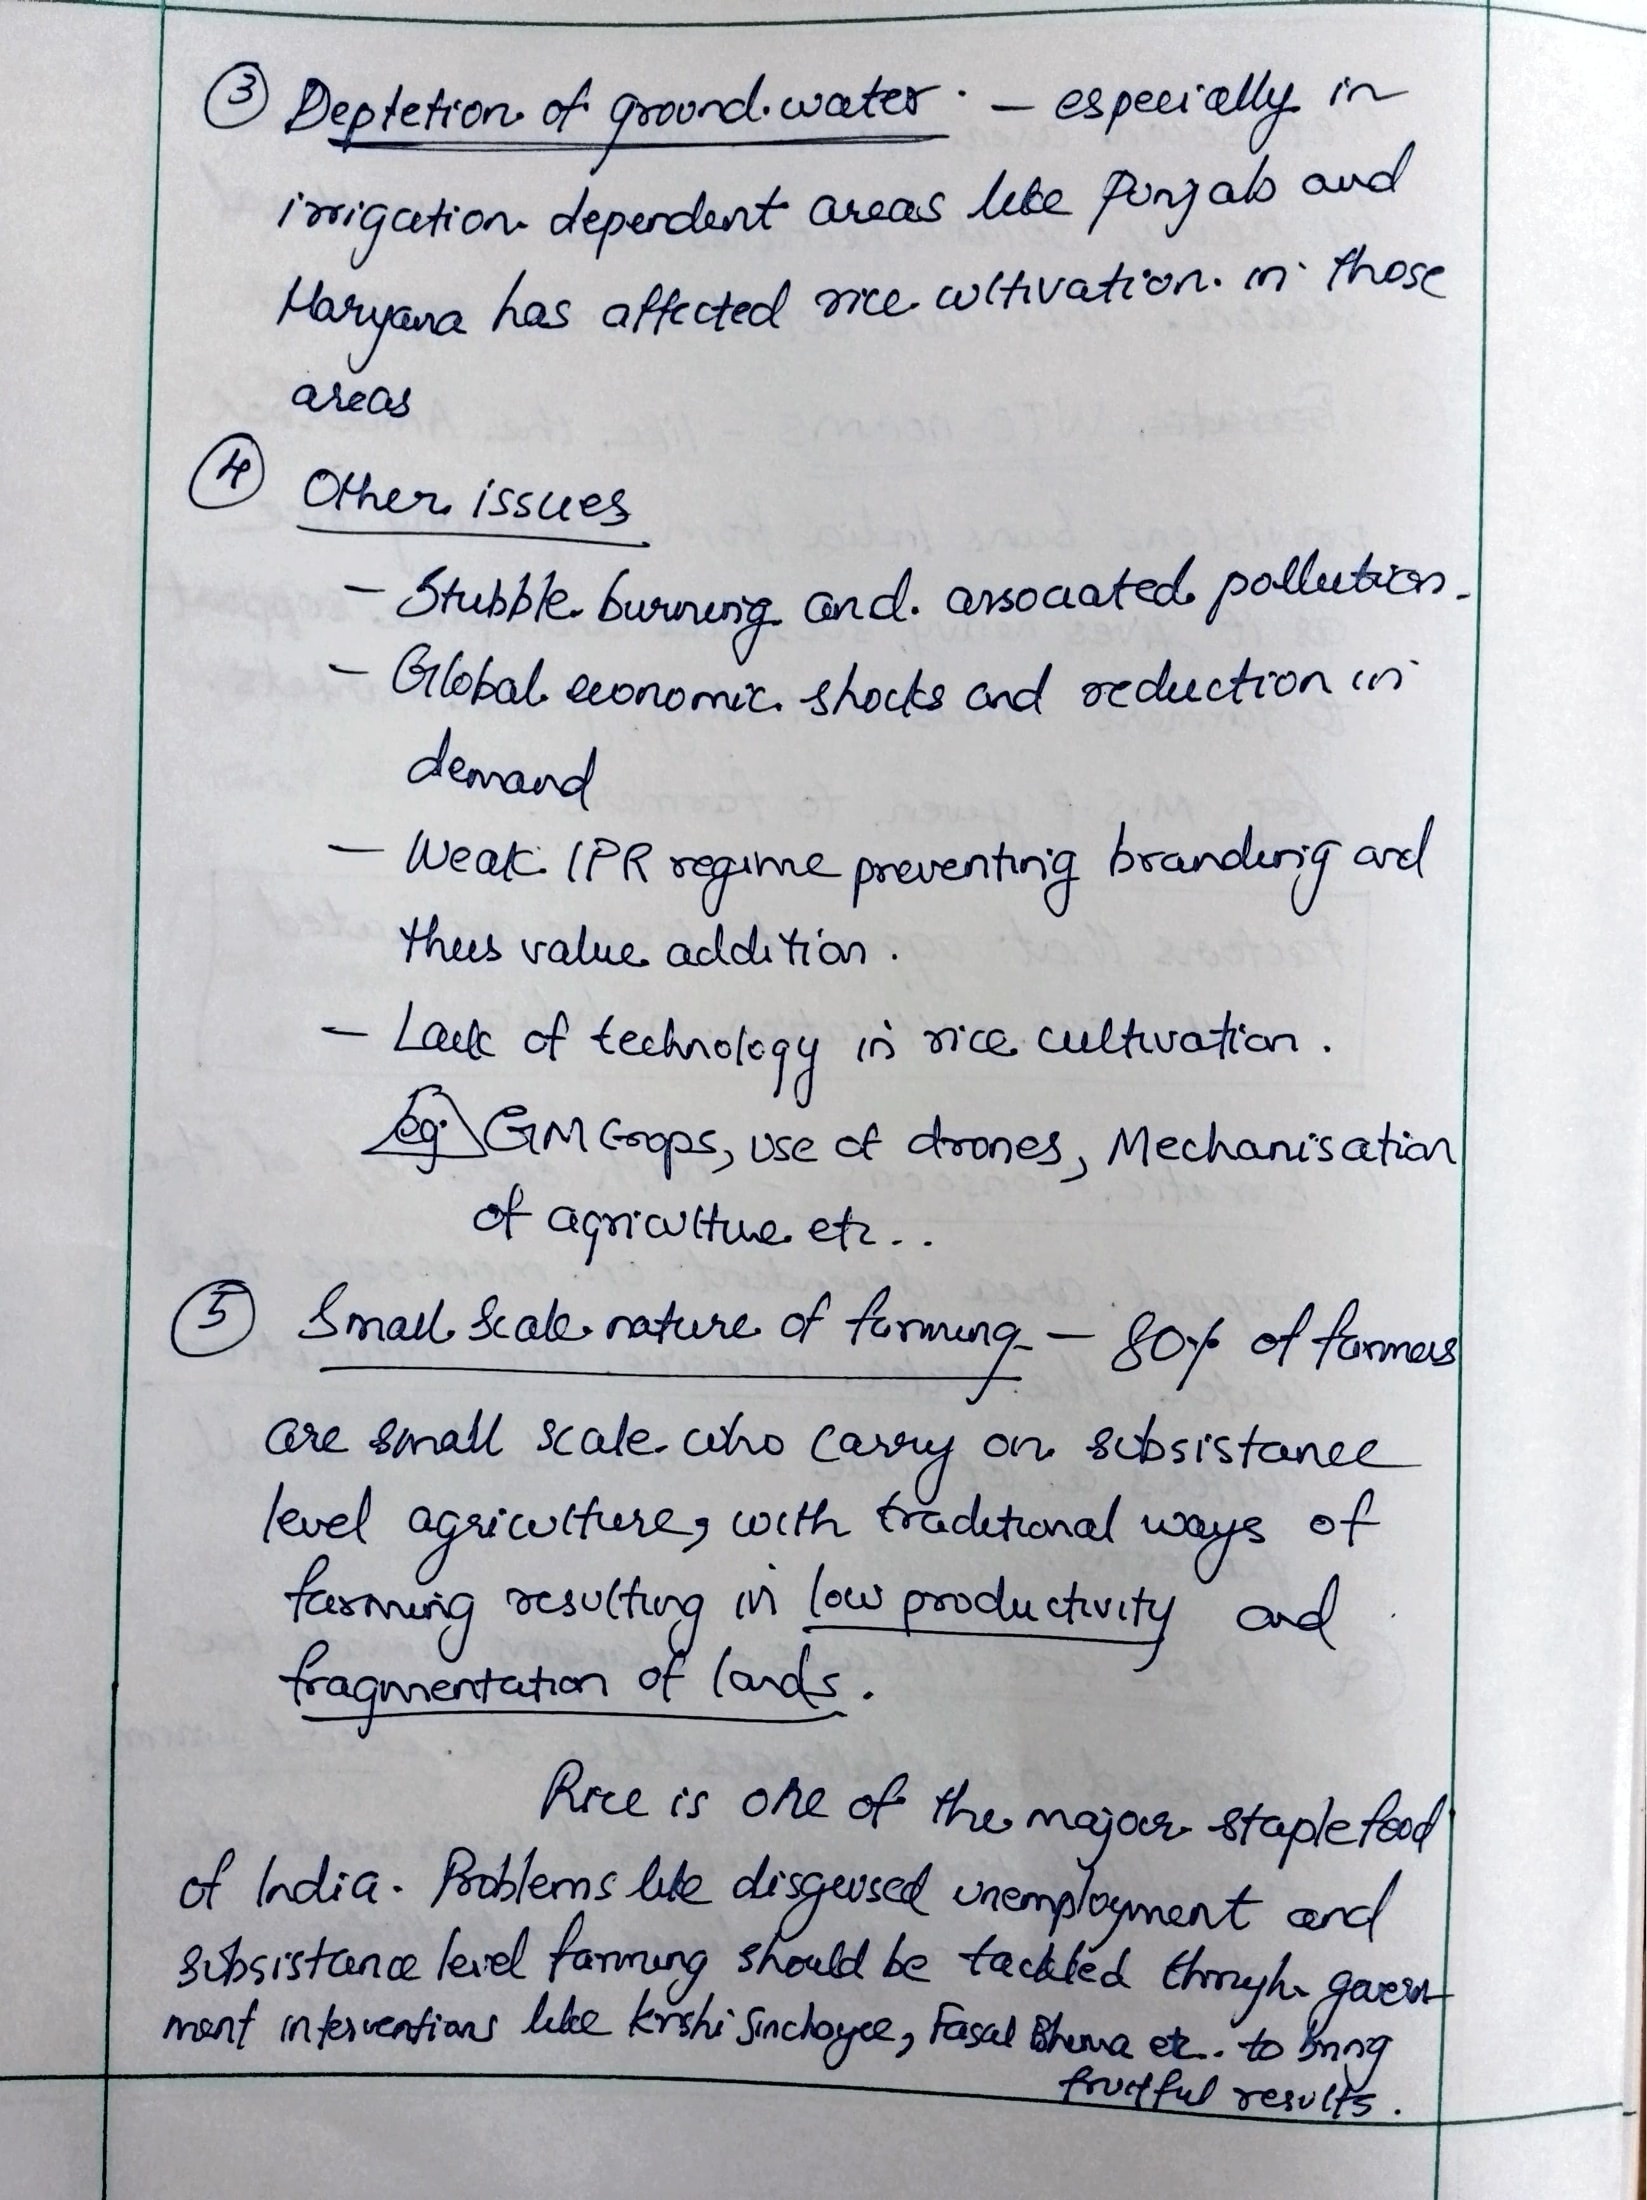 ③ Depletion of ground water. — especially in
irrigation dependent areas like Punjab and
Haryana has affected rice cultivation in those
areas
④ Other issues
– Stubble burning and associated pollution.
– Global economic shocks and reduction in
demand
– Weak IPR regime preventing branding and
thus value addition.
– Lack of technology in rice cultivation.
eg: GM Crops, use of drones, Mechanisation
of agriculture etc..
⑤ Small Scale nature of farming – 80% of farmers
are small scale who carry on subsistance
level agriculture, with traditional ways of
farming resulting in low productivity and
fragmentation of lands.
Rice is one of the major staple food
of India. Problems like disguised unemployment and
subsistance level farming should be tackled through govern-
ment interventions like Krishi Sinchayee, Fasal Bhima etc.. to bring
fruitful results.